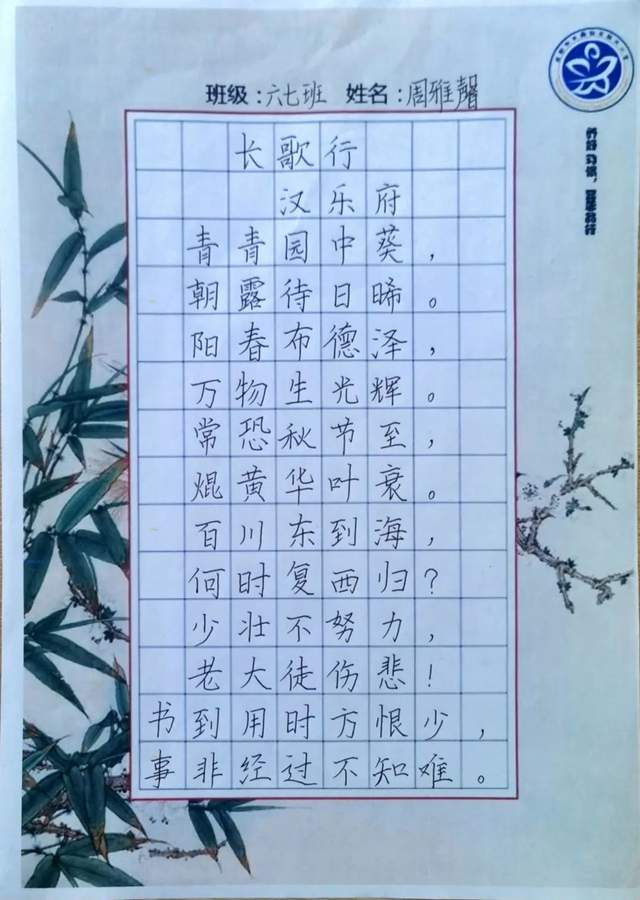 班级:六七班 姓名:周雅馨
长歌行
汉乐府
青青园中葵,
朝露待日晞。
阳春布德泽,
万物生光辉。
常恐秋节至,
焜黄华叶衰。
百川东到海,
何时复西归?
少壮不努力,
老大徒伤悲!
书到用时方恨少,
事非经过不知难。